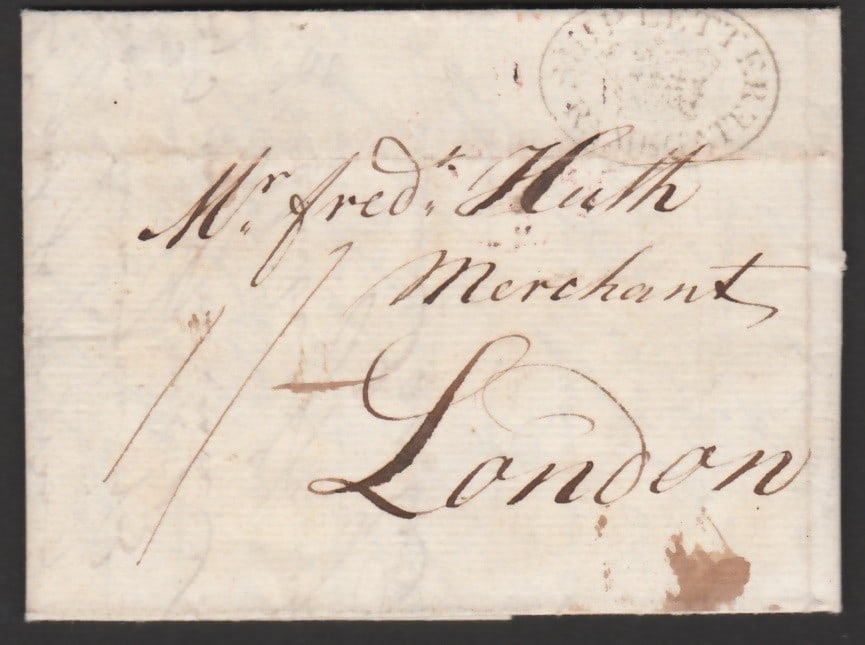 SHIP LETTER
Mr. fredk. Huth
Merchant
London